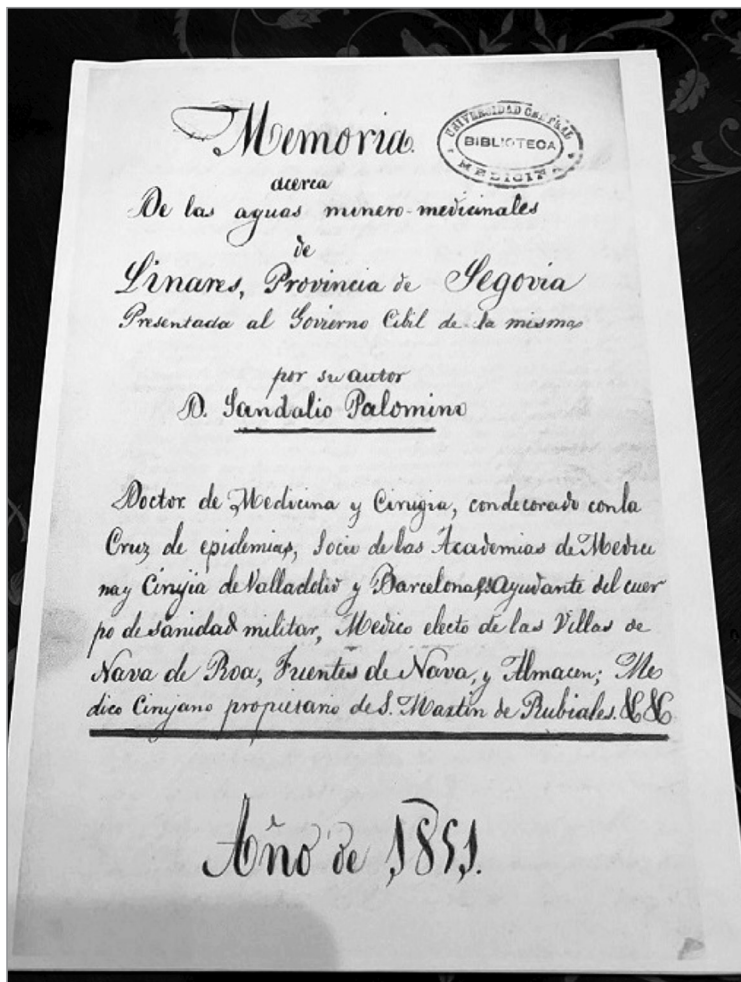 Memoria.
UNIVERSIDAD CENTRAL
BIBLIOTECA
MEDICINA
acerca
De las aguas minero-medicinales
de
Linares, Provincia de Segovia
Presentada al Govierno Cibil de la misma
por su autor
D. Sandalio Palomino
Doctor de Medicina y Cirugia, condecorado con la
Cruz de epidemias, Socio de las Academias de Medici
na y Cirujia de Valladolid y Barcelona, Ayudante del cuer
po de sanidad militar, Medico electo de las Villas de
Nava de Roa, Fuentes de Nava, y Almacen; Me
dico Cirujano propietario de S. Martin de Rubiales. &c &c
Año de 1851.